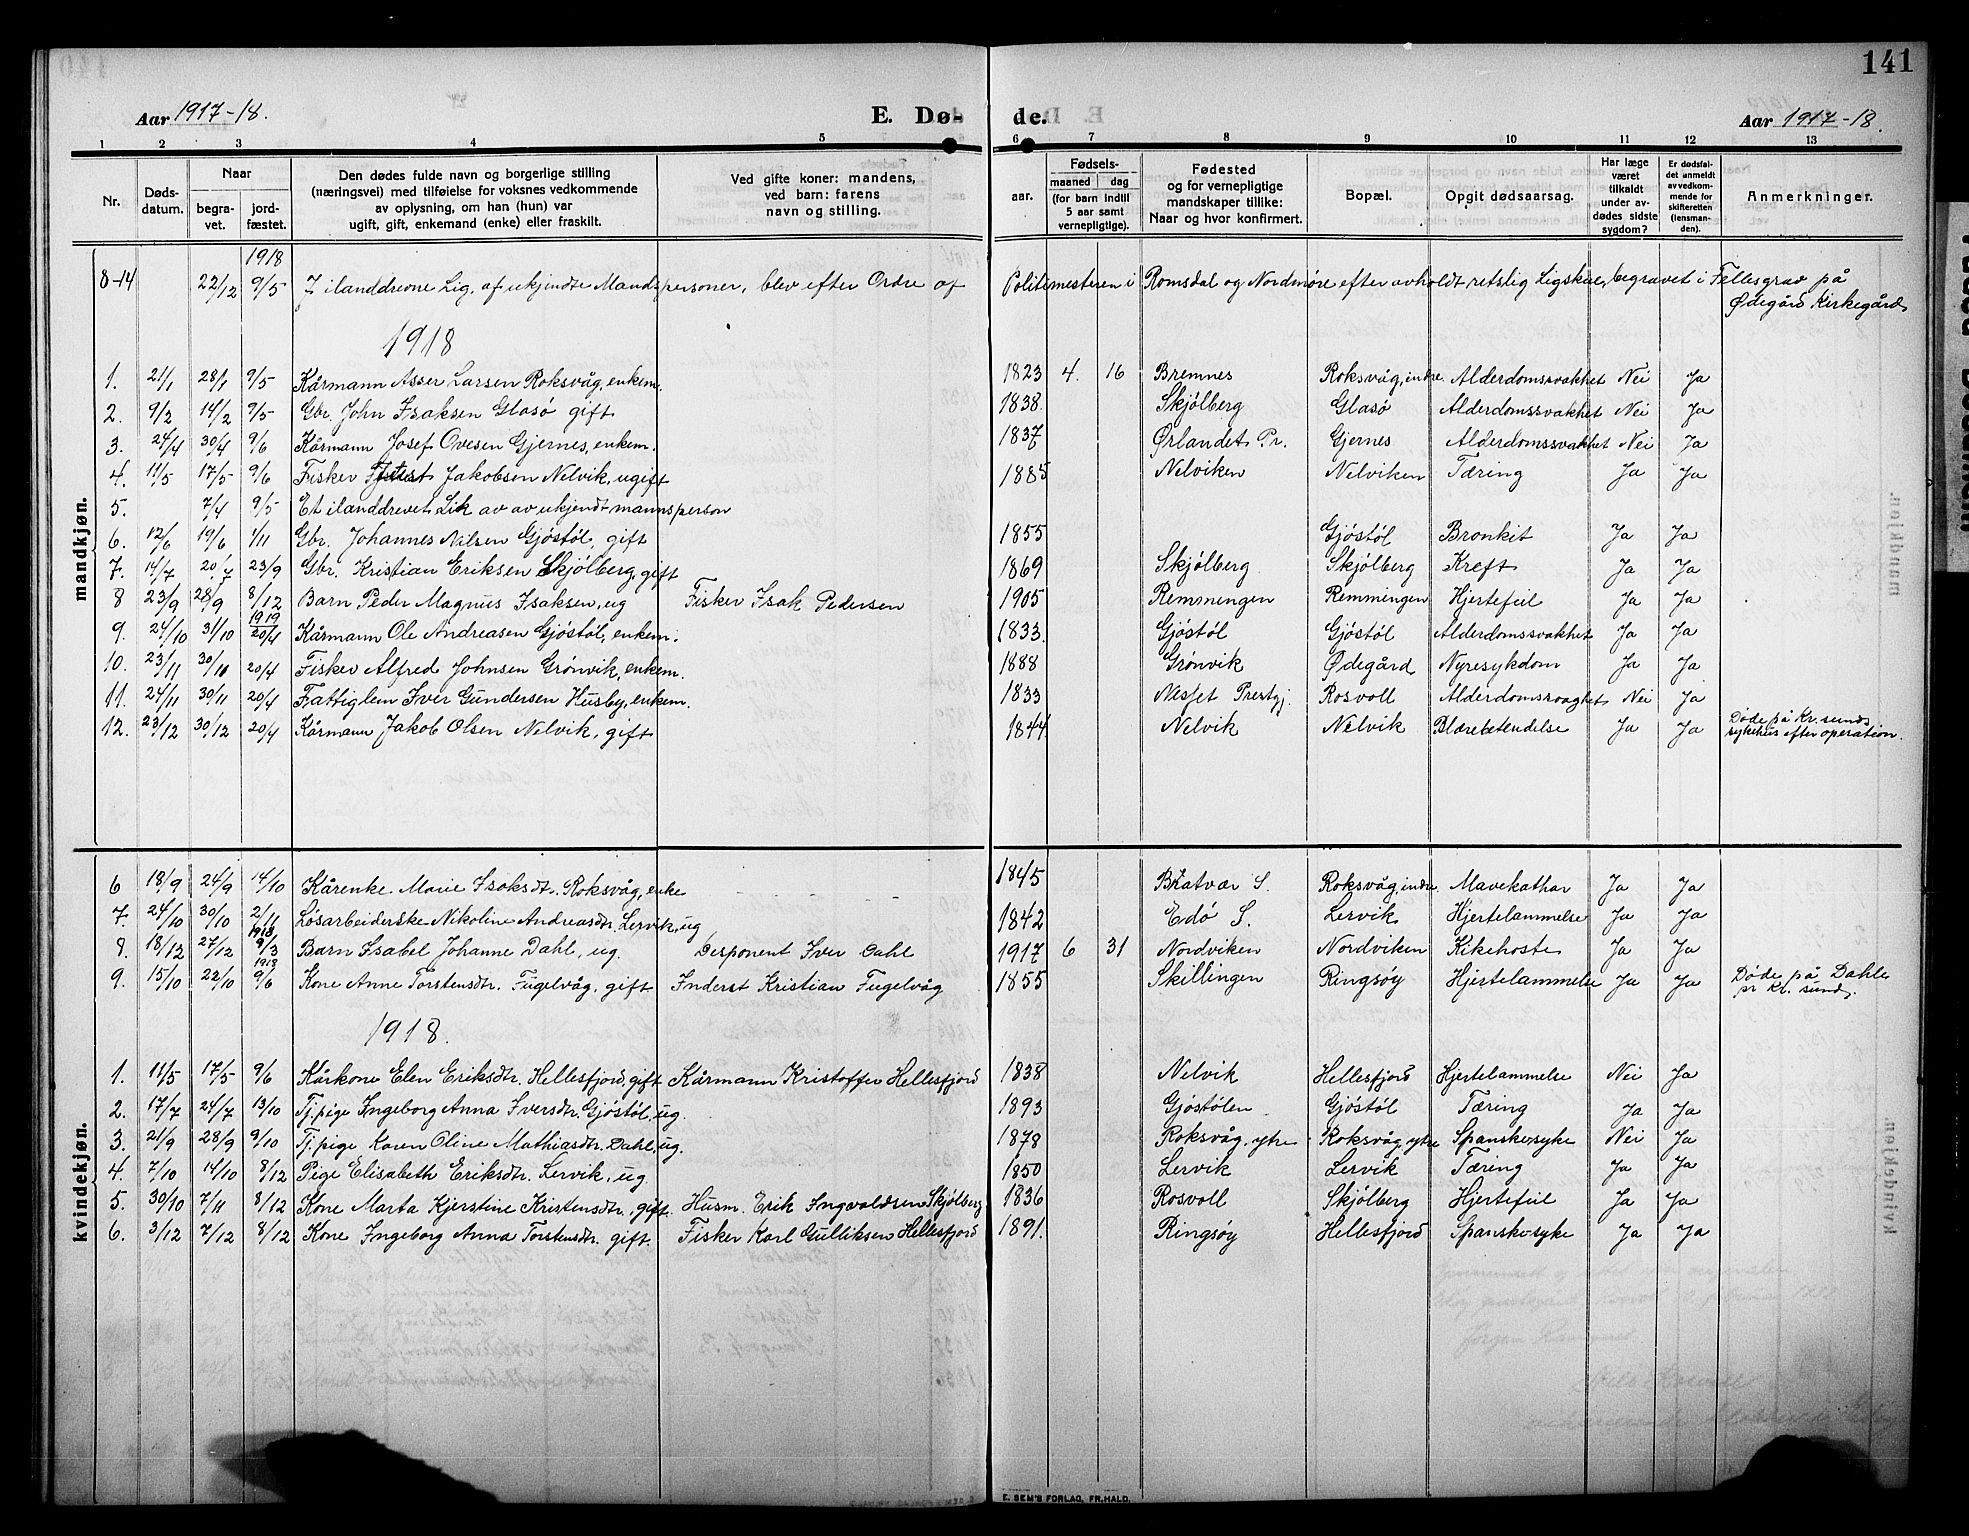 141
Aar 1917-18. E. Dø- de. Aar 1917-18.
1 2 3 4 5 6 7 8 9 10 11 12 13
Nr. Døds-datum. Naar begra-vet. jord-fæstet. Den dødes fulde navn og borgerlige stilling (næringsvei) med tilføielse for voksnes vedkommende av oplysning, om han (hun) var ugift, gift, enkemand (enke) eller fraskilt. Ved gifte koner: mandens, ved barn: farens navn og stilling. Fødsels- aar. maaned dag (for barn indtil 5 aar samt vernepligtige). Fødested og for vernepligtige mandskaper tillike: Naar og hvor konfirmert. Bopæl. Opgit dødsaarsag. Har læge været tilkaldt under av-dødes sidste sygdom? Er dødsfal-det anmeldt av vedkom-mende for skifteretten (lensman-den). Anmerkninger.
mandkjøn.
1918
8-14 22/12 9/5 7 ilanddrevne Lig, af ukjendte Mandspersoner, blev efter Ordre af Politimesteren i Romsdal og Nordmøre efter avholdt retslig Ligskue, begravet i Fellesgrav på
Ødegård Kirkegård
1918
1. 21/1 28/1 9/5 Kårmann Asser Larsen Roksvåg, enkem. 1823 4. 16 Bremnes Roksvåg, indre. Alderdomssvakhet Nei Ja
2. 9/2 14/2 9/5 Gbr. John Isaksen Glasø gift 1838. Skjølberg Glasø Alderdomssvakhet Nei Ja
3. 24/4 30/4 9/6 Kårmann Josef Ovesen Gjernes, enkem. 1837 Ørlandet Pr. Gjernes Alderdomssvakhet Nei Ja
4. 11/5 17/5 9/6 Fisker Jakobsen Nelvik, ugift 1885 Nelviken Nelviken Tæring Ja Ja
5. 7/4 9/5 Et ilanddrevet Lik av av ukjendt mannsperson
6. 12/6 19/6 4/11 Gbr. Johannes Nilsen Gjøstøl, gift 1855 Gjøstøl Bronkit Ja Ja
7. 14/7 20/7 23/9 Gbr. Kristian Eriksen Skjølberg, gift 1869 Skjølberg Skjølberg Kreft Ja Ja
8 23/9 28/9 8/12 Barn Peder Magnus Isaksen, ug Fisker Isak Pedersen 1905 Remmingen Remmingen Hjertefeil Ja Ja
1919
9. 24/10 31/10 20/4 Kårmann Ole Andreasen Gjøstøl, enkem. 1833. Gjøstøl Gjøstøl Alderdomssvakhet Ja Ja
10. 23/11 30/11 20/4 Fisker Alfred Johnsen Grønvik, enkem. 1888 Grønvik Ødegård Nyresykdom Ja Ja
11. 24/11 30/11 20/4 Fattiglem Iver Gundersen Husby, enkem. 1833 Nesset Prestgj. Rosvoll Alderdomssvaghet Nei Ja
12. 23/12 30/12 20/4 Kårmann Jakob Olsen Nelvik, gift 1844 Nelvik Nelvik Blærebetendelse Ja Ja Døde på Kr.sunds
sykehus efter operation.
kvindekjøn.
6 18/9 24/9 14/10 Kårenke Marie Isaksdtr. Roksvåg, enke 1845 Bratvær S. Roksvåg, indre. Mavekathar Ja Ja
7. 24/10 30/10 2/11 Løsarbeiderske Nikoline Andreasdtr. Lervik, ug 1842 Edø S. Lervik Hjertelammelse Ja Ja
1918
8. 18/12 27/12 9/3 Barn Isabel Johanne Dahl, ug. Desponent Iver Dahl 1917 6 31 Nordviken Nordviken Kikehoste Ja Ja
1918
9. 15/10 22/10 9/6 Kone Anne Torstensdtr. Fugelvåg, gift Inderst Kristian Fugelvåg 1855 Skillingen Ringsøy Hjertelammelse Ja Ja Døde på Dahle
pr Kr. sund.
1918.
1. 11/5 17/5 9/6 Kårkone Elen Eriksdtr. Hellesfjord, gift Kårmann Kristoffer Hellesfjord 1838 Nelvik Hellesfjord Hjertelammelse Nei Ja
2. 17/7 24/7 13/10 Tj. pige Ingeborg Anna Iversdtr. Gjøstøl, ug. 1893 Gjøstølen Gjøstøl Tæring Ja Ja
3. 21/9 28/9 9/10 Tj. pige Karen Oline Mathiasdtr. Dahl, ug. 1878 Roksvåg, ytre Roksvåg, ytre Spanskesyke Nei Ja
4. 7/10 14/10 8/12 Pige Elisabeth Eriksdtr. Lervik, ug 1850 Lervik Lervik Tæring Ja Ja
5. 30/10 7/11 8/12 Kone Marta Kjerstine Kristensdtr., gift. Husm. Erik Ingvaldsen Skjølberg 1836 Rosvoll Skjølberg Hjertefeil Ja Ja
6. 3/12 7/12 8/12 Kone Ingeborg Anna Torstensdtr. gift. Fisker Karl Gulliksen Hellesfjord 1891. Ringsøy Hellesfjord Spanskesyke Ja Ja
E. SEM'S FORLAG, FR.HALD.